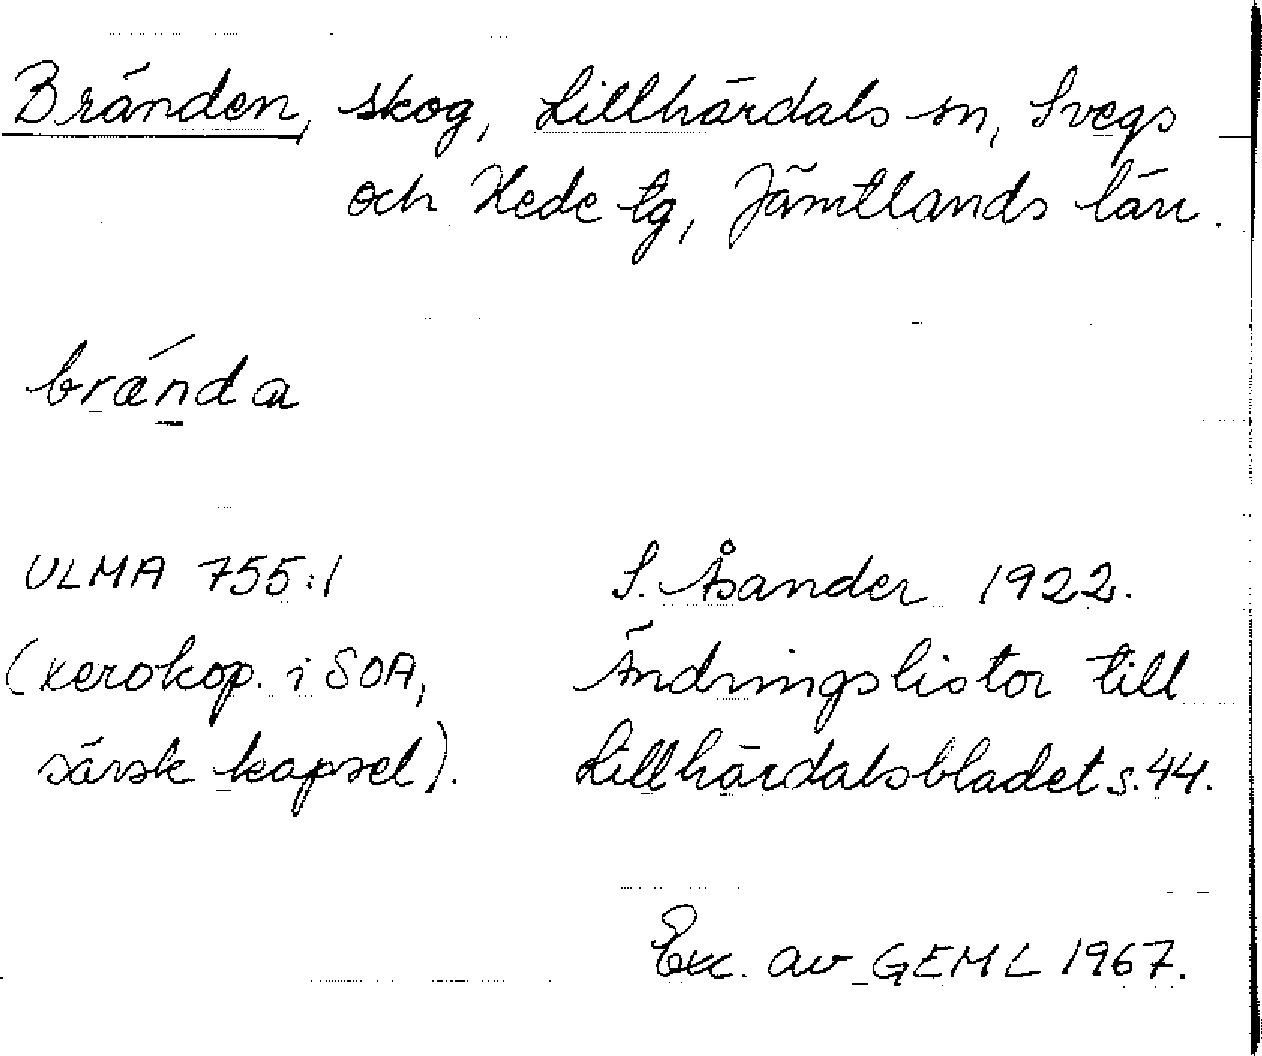 Bränden, skog, Lillhärdals sn, Svegs
och Hede tg, Jämtlands län.
brænda
ULMA 755:1
(xerokop. i SOA,
särsk kapsel).
S. Åsander 1922.
Ändringslistor till
Lillhärdalsbladet s. 44.
Exc. av GEML 1967.